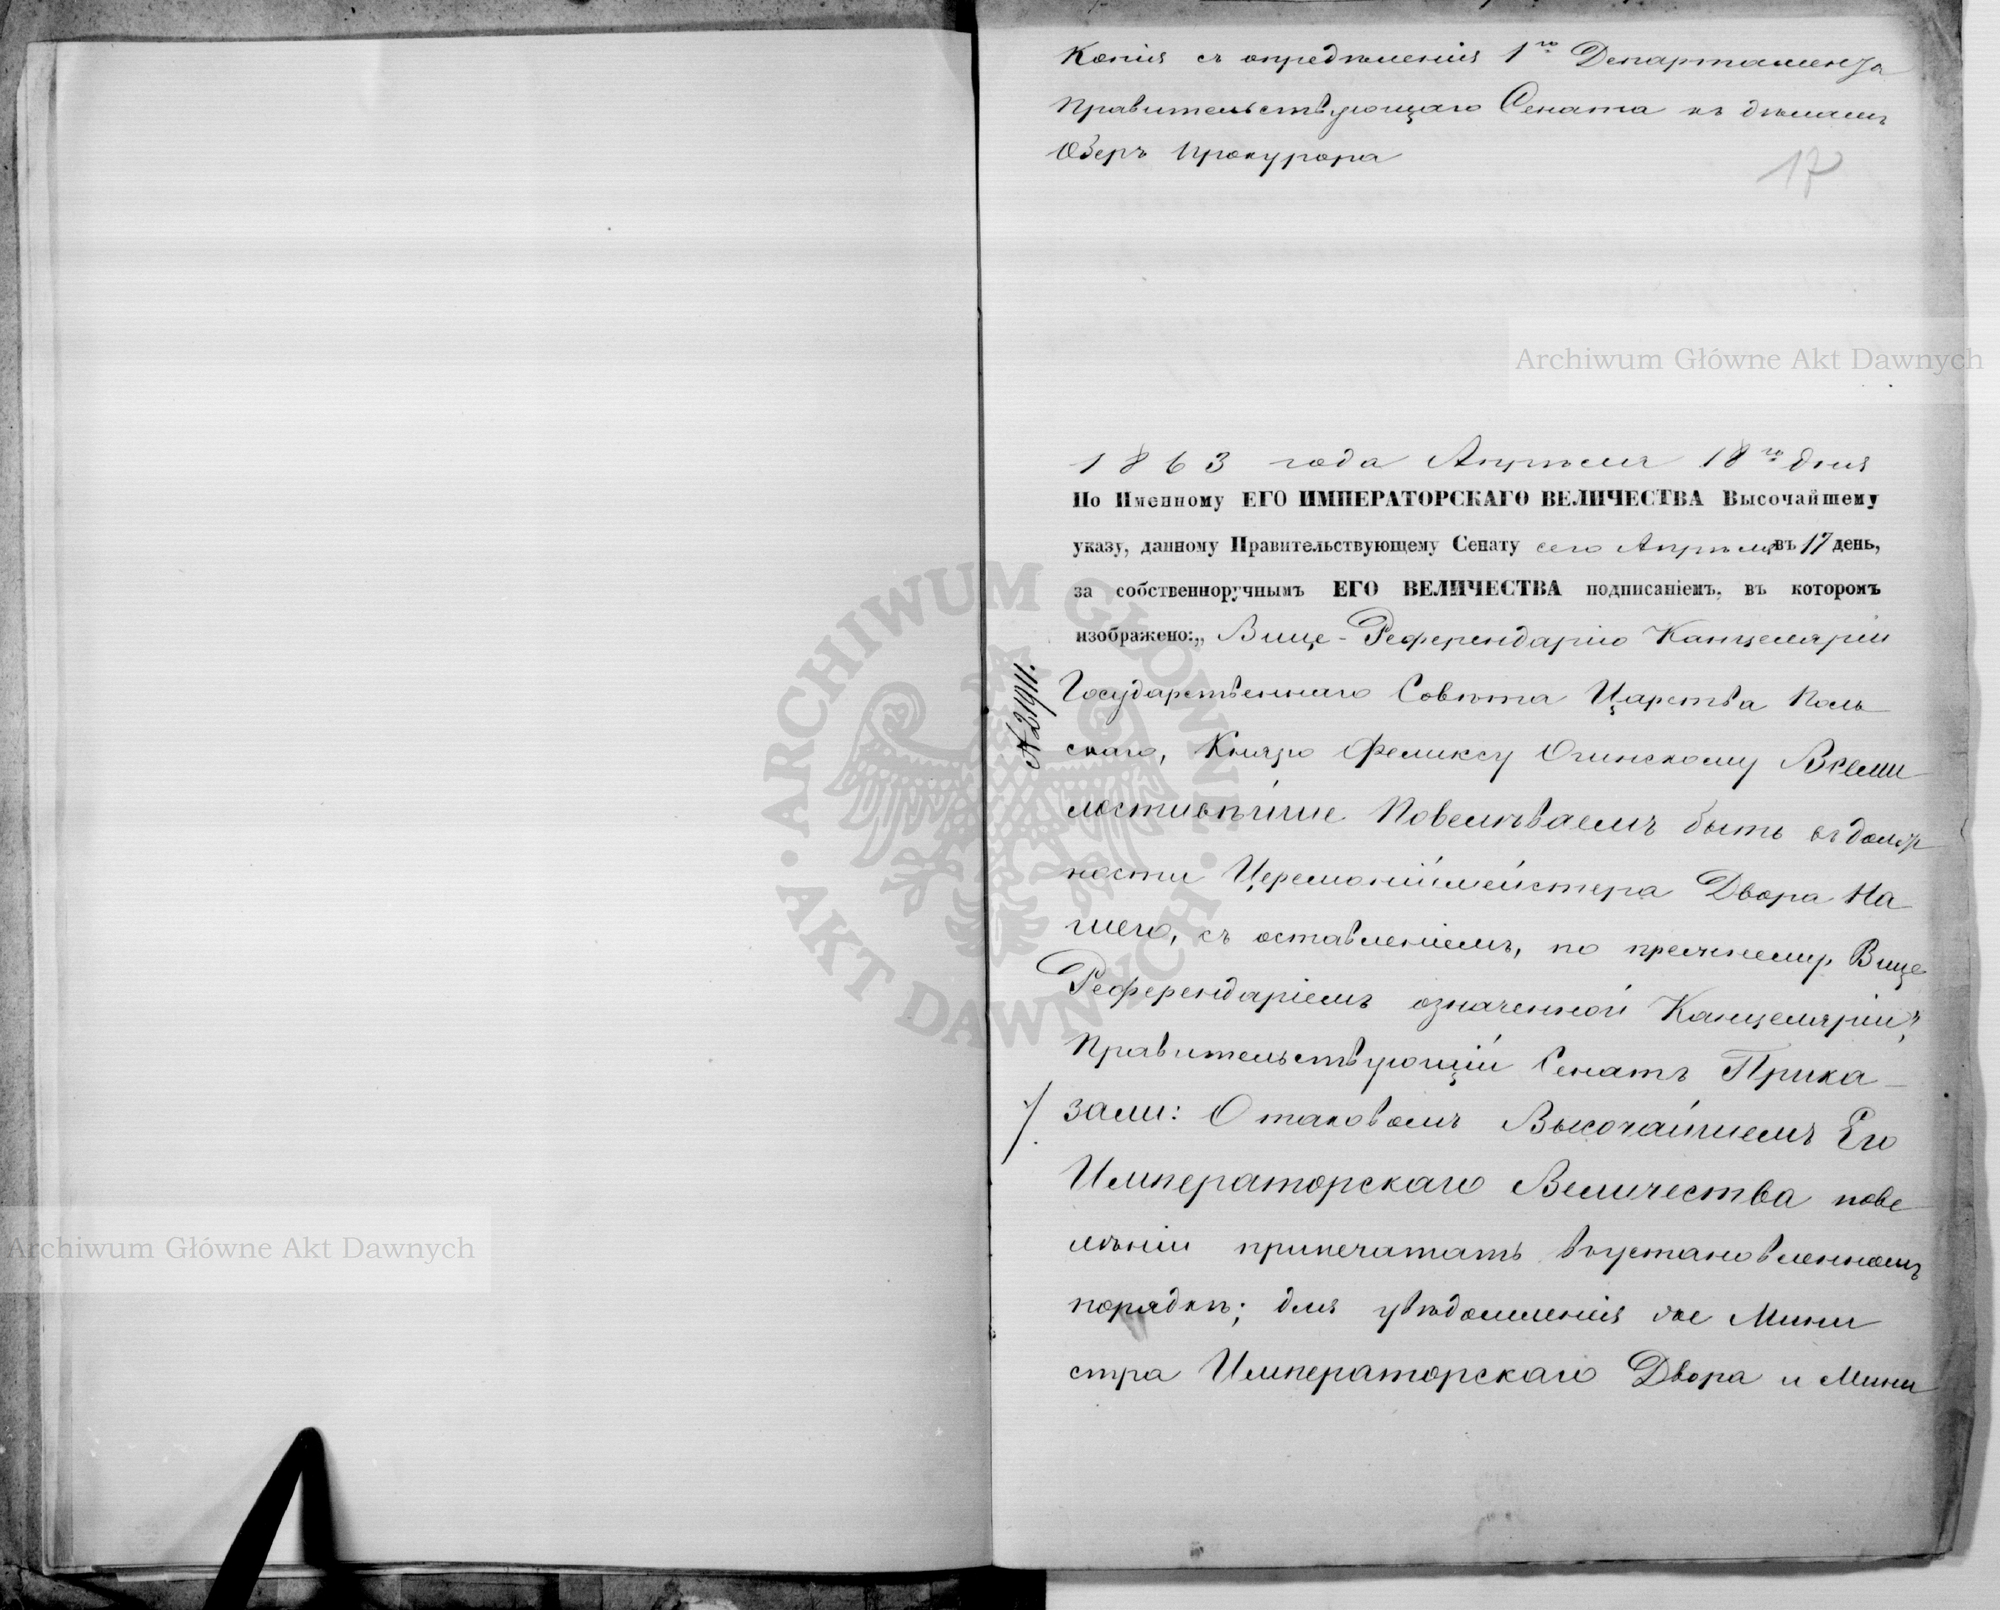 Копія съ опредѣленія 1го Департамента
Правительствующаго Сената къ дѣламъ
Оберъ Прокурора
17
Archiwum Główne Akt Dawnych
1863 года Апрѣля 18го дня
По Именному ЕГО ИМПЕРАТОРСКАГО ВЕЛИЧЕСТВА Высочайшему
указу, данному Правительствующему Сенату сего Апрѣля въ 17 день,
за собственноручнымъ ЕГО ВЕЛИЧЕСТВА подписаніемъ, въ которомъ
изображено: „Вице-Референдарію Канцеляріи
Государственнаго Совѣта Царства Поль
скаго, Князю Феликсу Огинскому Всеми
лостивѣйше Повелѣваемъ быть въ долж
ности Церемоніймейстера Двора На
шего, съ оставленіемъ, по прежнему, Вице
Референдаріемъ означенной Канцеляріи",
Правительствующій Сенатъ Прика-
зали: О таковомъ Высочайшемъ Его
Императорскаго Величества пове
лѣніи припечатать въ установленномъ
порядкѣ; для увѣдомленія же Мини
стра Императорскаго Двора и Мини
№ 21911.
ARCHIWUM GŁÓWNE AKT DAWNYCH
Archiwum Główne Akt Dawnych